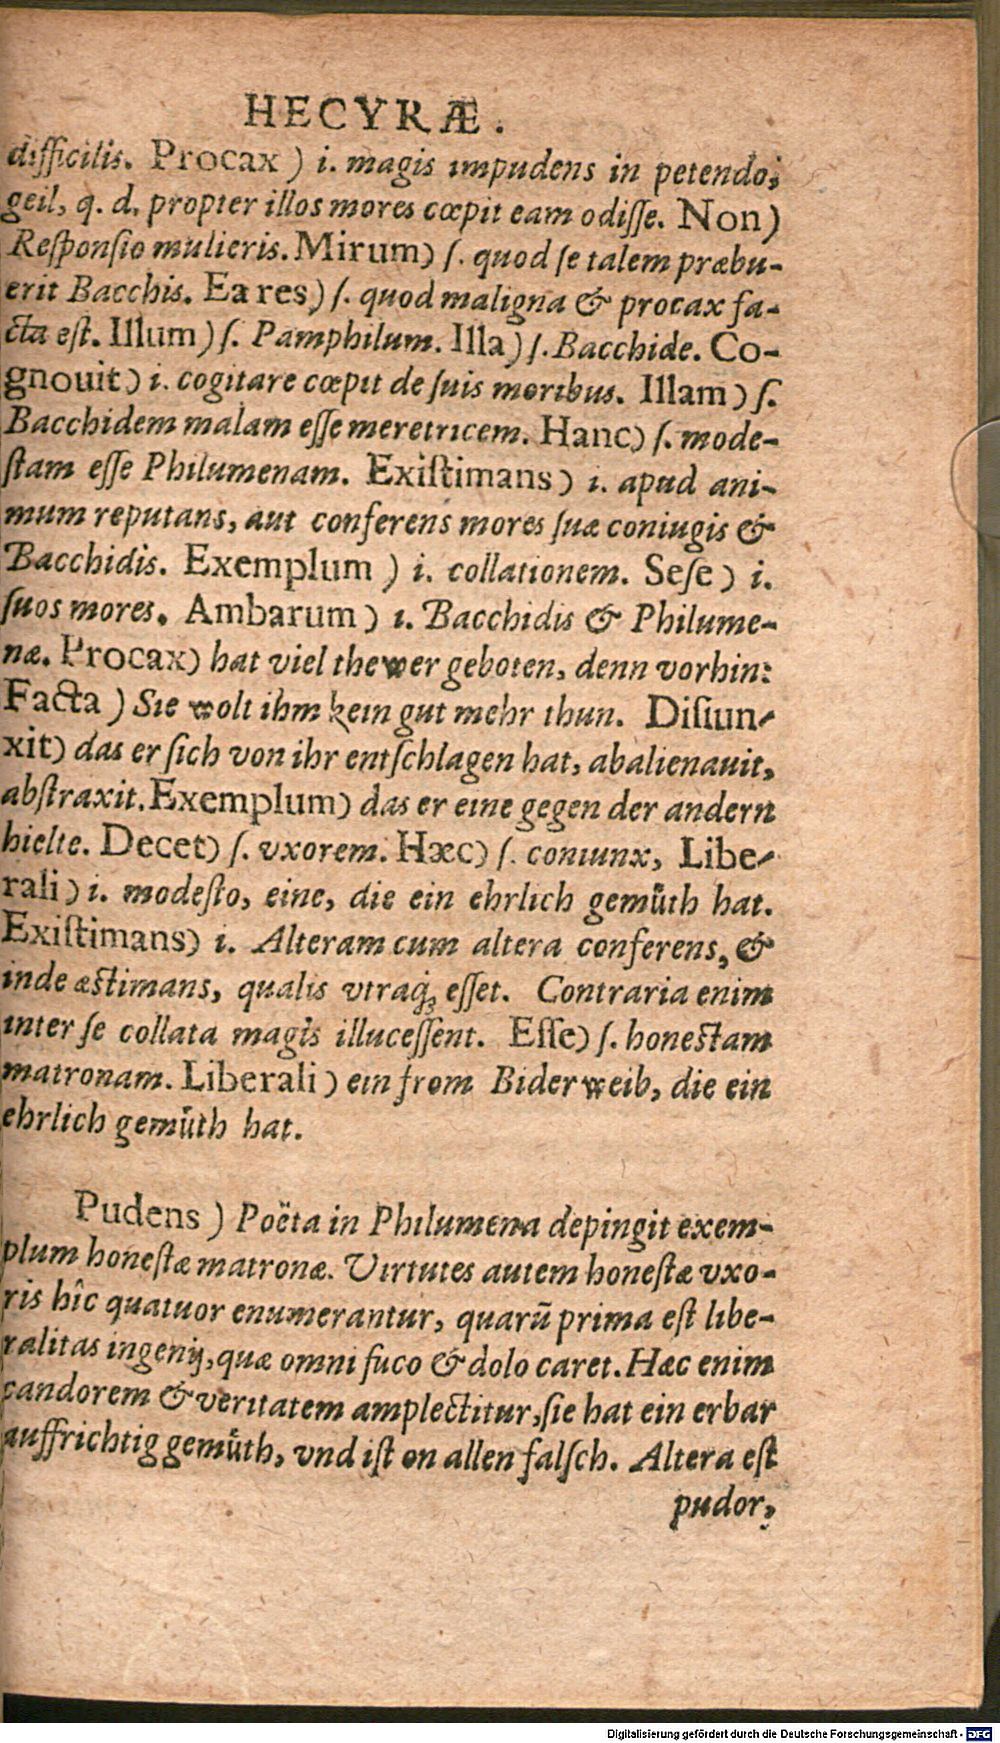 HECYRÆ.
difficilis. Procax ) i. magis impudens in petendo;
geil, q. d. propter illos mores cœpit eam odisse. Non)
Responsio mulieris. Mirum) ſ. quod ſe talem præbu-
erit Bacchis. Ea res) ſ. quod maligna & procax fa-
cta eſt. Illum) ſ. Pamphilum. Illa) ſ. Bacchide. Co-
gnouit) i. cogitare cœpit de ſuis moribus. Illam) ſ.
Bacchidem malam eſſe meretricem. Hanc) ſ. mode-
ſtam eſſe Philumenam. Exiſtimans) i. apud ani-
mum reputans, aut conferens mores ſuæ coniugis &
Bacchidis. Exemplum ) i. collationem. Seſe) i.
ſuos mores. Ambarum) i. Bacchidis & Philume-
næ. Procax) hat viel thewer geboten, denn vorhin:
Facta ) Sie wolt ihm kein gut mehr thun. Diſiun-
xit) das er ſich von ihr entſchlagen hat, abalienauit,
abſtraxit. Exemplum) das er eine gegen der andern
hielte. Decet) ſ. vxorem. Hæc) ſ. coniunx, Libe-
rali) i. modeſto, eine, die ein ehrlich gemuͤth hat.
Exiſtimans) i. Alteram cum altera conferens, &
inde æſtimans, qualis vtraq; eſſet. Contraria enim
inter ſe collata magis illuceſſent. Eſſe) ſ. honeſtam
matronam. Liberali) ein from Biderweib, die ein
ehrlich gemuͤth hat.
Pudens ) Poëta in Philumena depingit exem-
plum honeſtæ matronæ. Virtutes autem honeſtæ vxo-
ris hîc quatuor enumerantur, quarũ prima eſt libe-
ralitas ingenij, quæ omni fuco & dolo caret. Hæc enim
candorem & veritatem amplectitur, ſie hat ein erbar
auffrichtig gemuͤth, vnd iſt on allen falſch. Altera eſt
pudor,
Digitalisierung gefördert durch die Deutsche Forschungsgemeinschaft - DFG